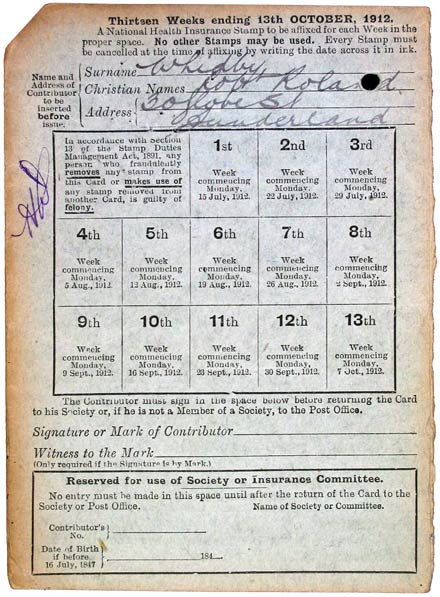 Thirteen Weeks ending 13th OCTOBER, 1912.
A National Health Insurance Stamp to be affixed for each Week in the
proper space. No other Stamps may be used. Every Stamp must
be cancelled at the time of affixing by writing the date across it in ink.
Name and
Address of
Contributor
to be
inserted
before
issue.
Surname Whidby
Christian Names Robt Roland
Address 20 St
Sunderland
In accordance with Section
13 of the Stamp Duties
Management Act, 1891, any
person who fraudulently
removes any stamp from
this Card or makes use of
any stamp removed from
another Card, is guilty of
felony.
1st
Week
commencing
Monday,
15 July, 1912.
2nd
Week
commencing
Monday,
22 July, 1912.
3rd
Week
commencing
Monday,
29 July, 1912.
4th
Week
commencing
Monday,
5 Aug., 1912.
5th
Week
commencing
Monday,
12 Aug., 1912.
6th
Week
commencing
Monday,
19 Aug., 1912.
7th
Week
commencing
Monday,
26 Aug., 1912.
8th
Week
commencing
Monday,
2 Sept., 1912.
9th
Week
commencing
Monday,
9 Sept., 1912.
10th
Week
commencing
Monday,
16 Sept., 1912.
11th
Week
commencing
Monday,
23 Sept., 1912.
12th
Week
commencing
Monday,
30 Sept., 1912.
13th
Week
commencing
Monday,
7 Oct., 1912.
The Contributor must sign in the space below before returning the Card
to his Society or, if he is not a Member of a Society, to the Post Office.
Signature or Mark of Contributor
Witness to the Mark
(Only required if the Signature is by Mark.)
Reserved for use of Society or Insurance Committee.
No entry must be made in this space until after the return of the Card to the
Society or Post Office. Name of Society or Committee.
Contributor's
No.
Date of Birth
if before
16 July, 1847
184